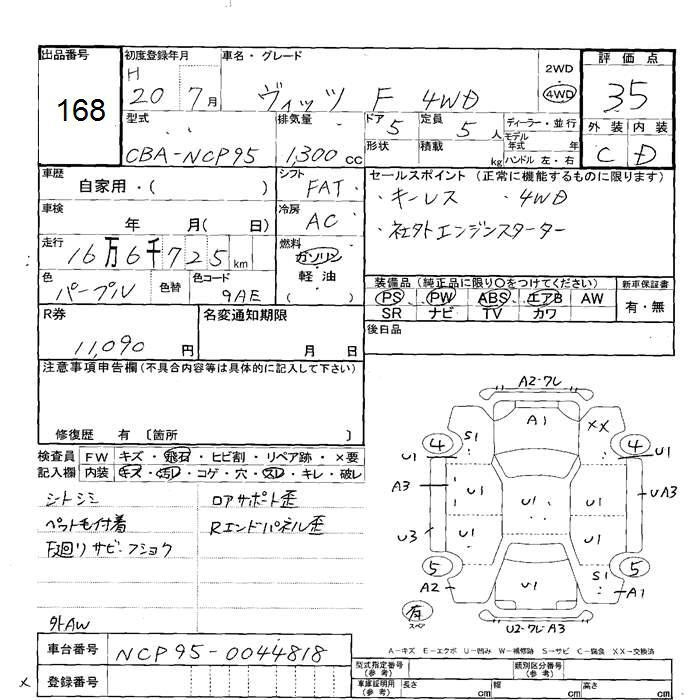 出品番号 初度登録年月 車名・グレード 2WD 評価点
168 H 20 7月 ヴィッツ F 4WD 4WD 35
型式 排気量 ドア 5 定員 5人 ディーラー・並行 外装 内装
CBA-NCP95 1,300cc 形状 積載 kg モデル年式 年 ハンドル 左・右 C D
車歴 シフト セールスポイント(正常に機能するものに限ります)
自家用・( ) FAT ・キーレス ・4WD
車検 冷房 ・社外エンジンスターター
年 月( 日) AC
走行 燃料
16万6千725km ガソリン
軽・油
色 色替 色コード 装備品(純正品に限り○をつけてください) 新車保証書
パープル 9AE PS PW ABS エアB AW 有・無
R券 名変通知期限 SR ナビ TV カワ
11,090円 月 日 後日品
注意事項申告欄(不具合内容等は具体的に記入して下さい)
修復歴 有 〔箇所 〕
検査員 FW キズ・飛石・ヒビ割・リペア跡・×要
記入欄 内装 キズ・汚レ・コゲ・穴・スレ・キレ・破レ
シトシミ ロアサポト歪
ペットモ付着 Rエンドパネル歪
下廻リサビ・フショク
外AW
A2-フレ
A1
S1 XX
4 4
U1 U1
A3 U1 U1 U1 UA3
U3 U1 U1
5 5
A2 U1 S1 A1
有 スペア U2-フレ-A3
A-キズ E-エクボ U-凹み W-補修跡 S-サビ C-腐食 XX-交換済
車台番号 NCP95-0044818
型式指定番号(参考) 類別区分番号(参考)
× 登録番号 車庫証明用(参考) 長さ cm 幅 cm 高さ cm